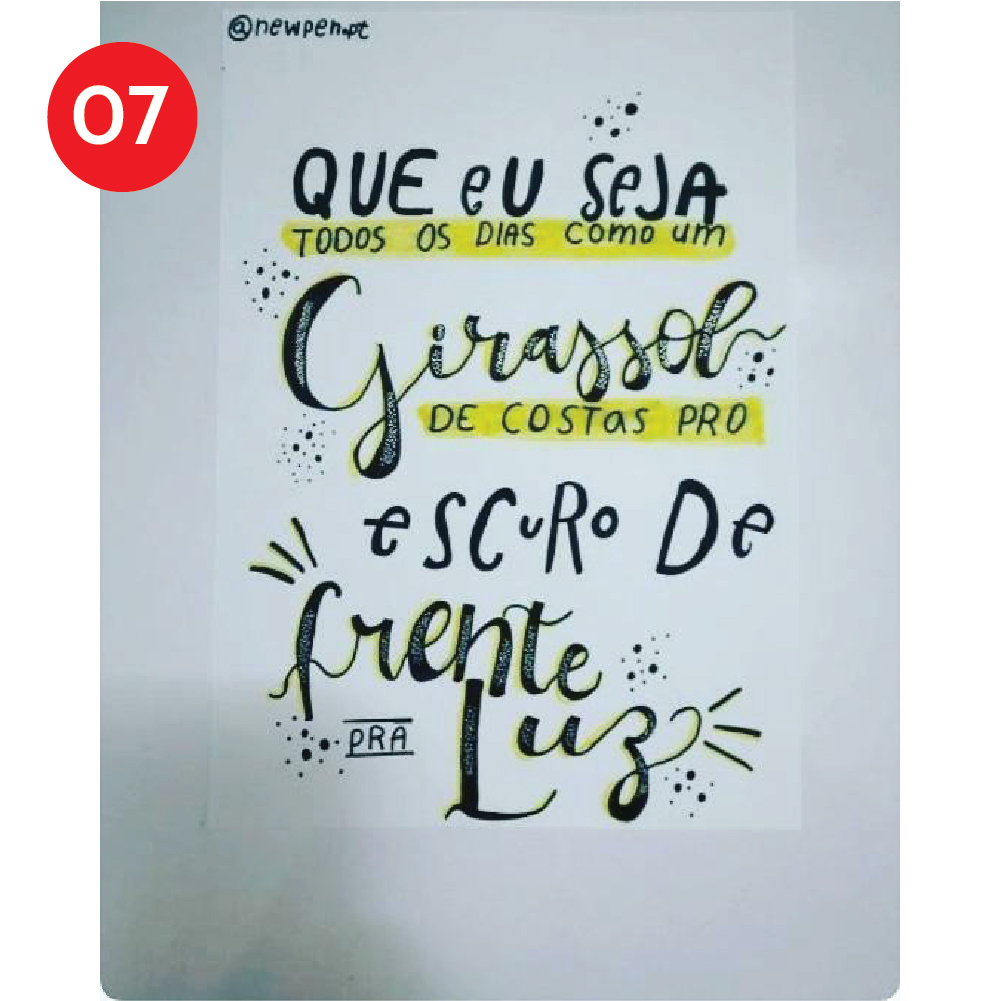 @newpen.pt
07
QUE eU SeJA
TODOS OS DIAS como um
Girassol
DE COSTas PRO
eSCuRo De
frente
PRA Luz